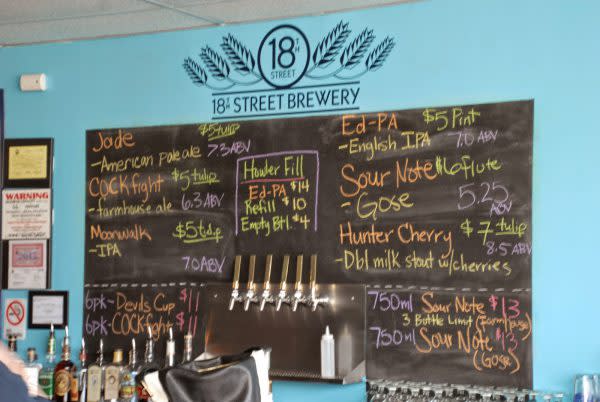 18TH
STREET
18TH STREET BREWERY
WARNING
Jade $5 tulip
-American pale ale 7.3 ABV
COCKfight $5 tulip
-farmhouse ale 6.3 ABV
Moonwalk $5 tulip
-IPA
7.0 ABV
Howler Fill
Ed-PA $14
Refill $10
Empty Btl. $4
Ed-PA $5 Pint
-English IPA 7.0 ABV
Sour Note $6 flute
-Gose 5.25 ABV
Hunter Cherry $7 tulip
-Dbl milk stout w/cherries 8.5 ABV
6pk-Devils Cup $11
6pk-COCKfight $11
750ml Sour Note $13
3 Bottle Limit (Farmhouse)
750ml Sour Note $13
(Gose)